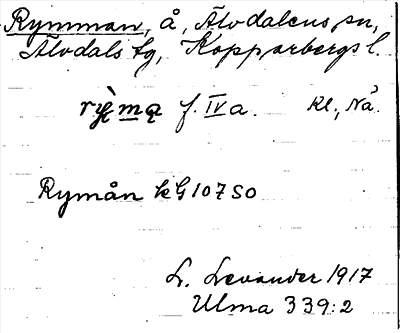 Rymman, å, Älvdalens sn,
Älvdals tg, Kopparbergs l.
f. IV a. Kl., Nå.
Rymån kG 107 SO
L. Levander 1917
Ulma 339:2